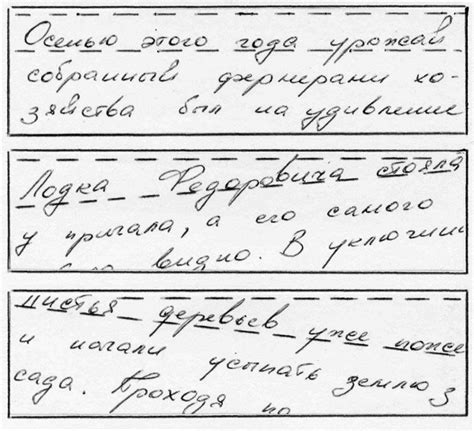 Осенью этого года урожай
собранный фермерами хо-
зяйства был на удивление
Лодка Федоровича стояла
у причала, а его самого
видно. В уключин
листья деревьев уже поже
и начали усыпать землю
сада. Проходя по